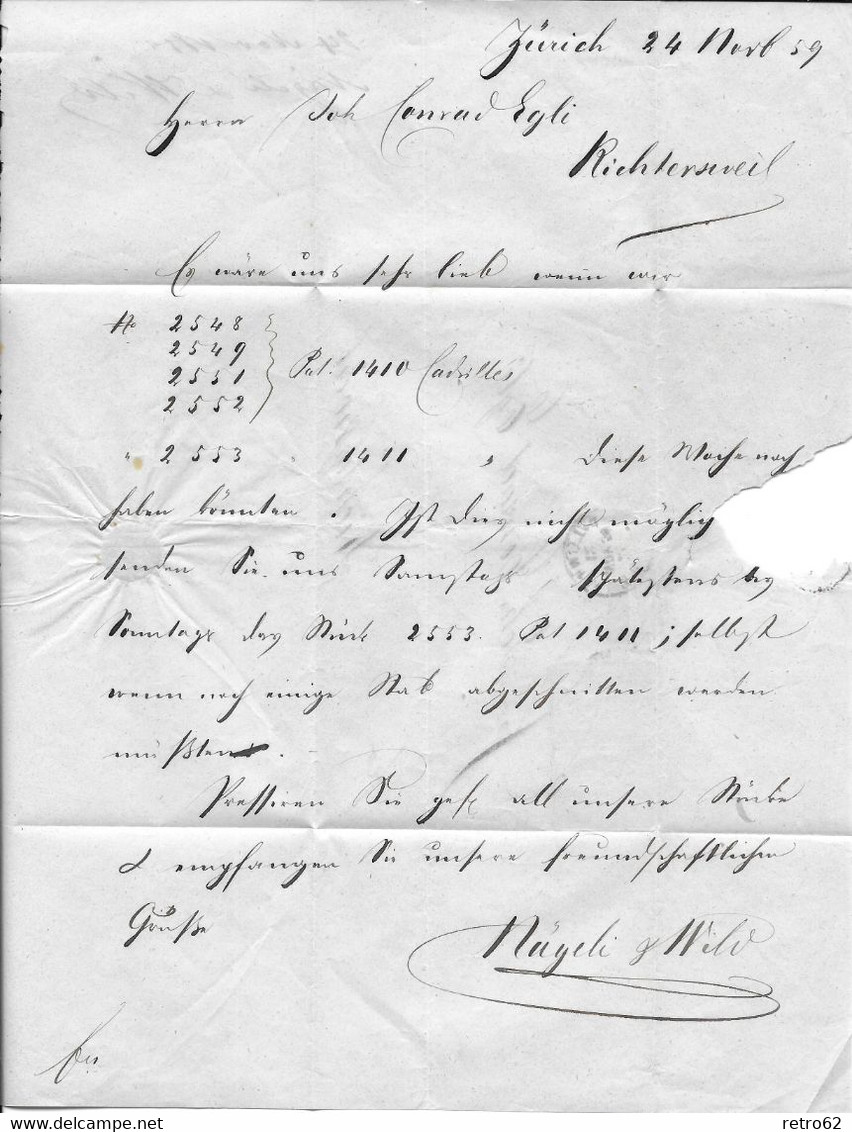 Zürich 24 Novb 59
Herrn Joh Conrad Egli
Richtersweil
Es wäre uns sehr lieb wenn wir
No 2548
2549
2551 Pat. 1410 Cadrilles
2552
" 2553 " 1411 " diese Woche noch
haben könnten. Ist dies nicht möglich
senden Sie uns Samstags spätestens bis
Sonntags das Stück 2553. Pat 1411; selbst
wenn noch einige Stab abgeschnitten werden
müßten.
Pressiren Sie gefl. all unsere Stücke
& empfangen Sie unsere freundschaftlichen
Grüße
Nägeli & Wild
retro62